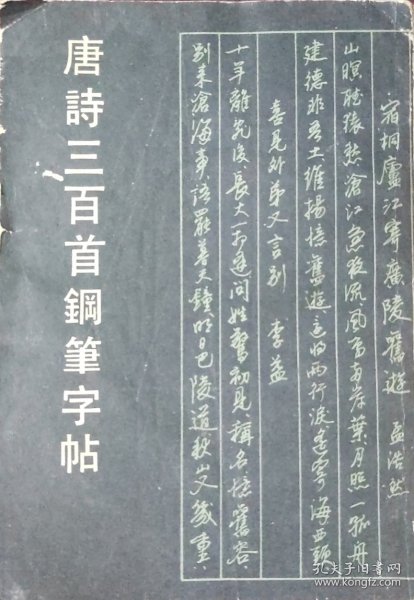 唐詩三百首鋼筆字帖
宿桐廬江寄廣陵舊遊 孟浩然
山暝聽猿愁滄江急夜流風鳴兩岸葉月照一孤舟
建德非吾土維揚憶舊遊還將兩行淚遙寄海西頭
喜見外弟又言別 李益
十年離亂後長大一相逢問姓驚初見稱名憶舊容
別來滄海事語罷暮天鐘明日巴陵道秋山又幾重
孔夫子旧书网